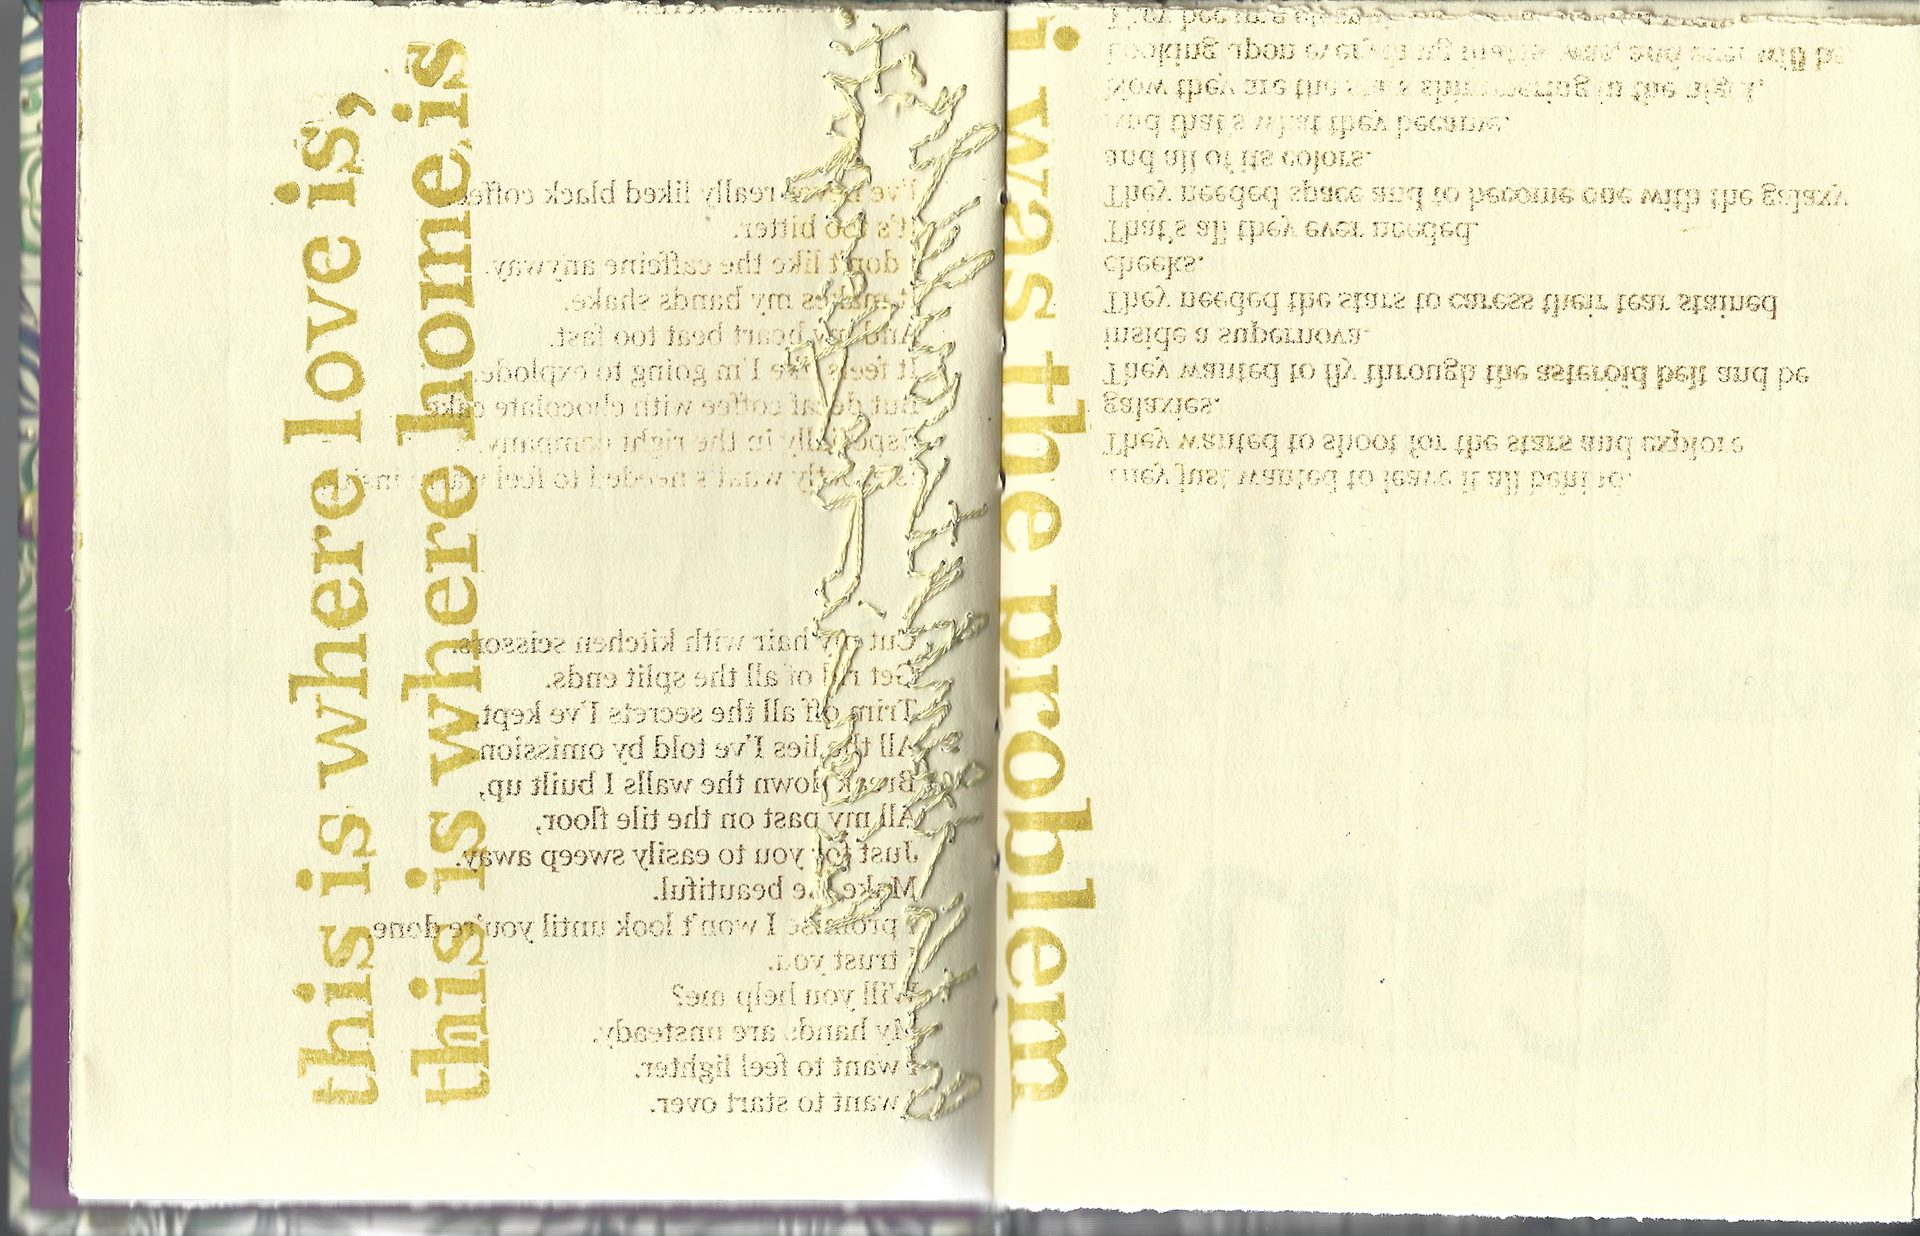 this is where love is,
this is where home is
I've never really liked black coffee.
It's too bitter.
I don't like the caffeine anyway.
It makes my hands shake.
And my heart beat too fast.
It feels like I'm going to explode.
But decaf coffee with chocolate cake
Especially in the right company.
what's needed to feel
Cut my hair with kitchen scissors.
Get rid of all the split ends.
Trim off all the secrets I've kept,
All the lies I've told by omission.
Break down the walls I built up,
All my past on the tile floor,
Just for you to easily sweep away.
Make me beautiful.
I promise I won't look until you're done.
I trust you.
Will you help me?
My hands are unsteady.
I want to feel lighter.
I want to start over.
i was the problem
They just wanted to leave it all behind.
They wanted to shoot for the stars and explore
galaxies.
They wanted to fly through the asteroid belt and be
inside a supernova.
They needed the stars to caress their tear stained
cheeks.
That's all they ever needed.
They needed space and to become one with the galaxy
and all of its colors.
And that's what they became.
Now they are the stars shimmering in the night,
Looking upon everything that is, was, and ever will be
They became